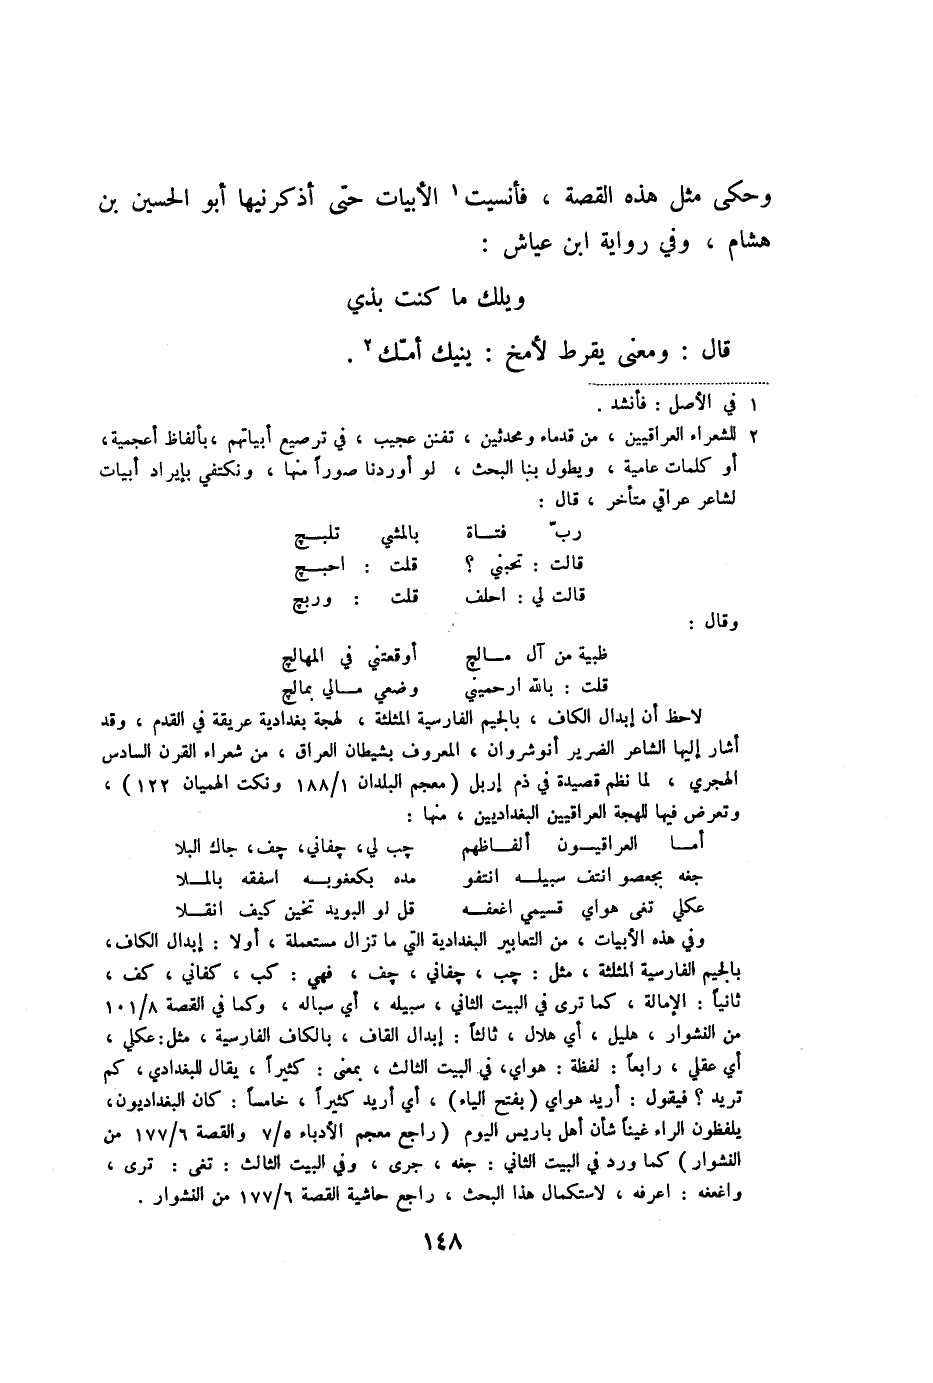 وحكى مثل هذه القصة ، فأنسيت١ الأبيات حتّى أذكرنيها أبو الحسين بن
هشام ، وفي رواية ابن عياش :
ويلك ما كنت بذي
قال : ومعنى يقرط لأمخ : ينيك أمّك٢ .
١ في الأصل : فأنشد .
٢ للشعراء العراقيين ، من قدماء ومحدثين ، تفنن عجيب ، في ترصيع أبياتهم ، بألفاظ أعجمية ،
أو كلمات عامية ، ويطول بنا البحث ، لو أوردنا صوراً منها ، ونكتفي بإيراد أبيات
لشاعر عراقي متأخر ، قال :
ربّ فتـاة بالمشي تلبـج
قالت : تحبني ؟ قلت : احبـچ
قالت لي : احلف قلت : وربچ
وقال :
ظبية من آل مـالچ أوقعتني في المهالچ
قلت : بالله ارحميني وضعي مـالي بمالچ
لاحظ أن إبدال الكاف ، بالجيم الفارسية المثلثة ، لهجة بغدادية عريقة في القدم ، وقد
أشار إليها الشاعر الضرير أنوشروان ، المعروف بشيطان العراق ، من شعراء القرن السادس
الهجري ، لما نظم قصيدة في ذم إربل ( معجم البلدان ١٨٨/١ ونكت الهميان ١٢٢ ) ،
وتعرض فيها للهجة العراقيين البغداديين ، منها :
أمـا العراقيـون ألفـاظهم چب لي، چفاني، چف، جاك البلا
جغه بجعصو انتف سبيلـه انتفو مده بكعفوبـه اسفقه بالمـلا
عكلي تغى هواي قسيمي اغعفـه قل لو البويد تخين كيف انقـلا
وفي هذه الأبيات ، من التعابير البغدادية التي ما تزال مستعملة ، أولا : إبدال الكاف ،
بالجيم الفارسية المثلثة ، مثل : چب ، چفاني ، چف ، فهي : كب ، كفاني ، كف ،
ثانياً : الإمالة ، كما ترى في البيت الثاني ، سبيله ، أي سباله ، وكما في القصة ١٠١/٨
من النشوار ، هليل ، أي هلال ، ثالثاً : إبدال القاف ، بالكاف الفارسية ، مثل : عكلي ،
أي عقلي ، رابعاً : لفظة : هواي، في البيت الثالث ، بمعنى : كثيراً ، يقال للبغدادي ، كم
تريد ؟ فيقول : أريد هواي ( بفتح الياء ) ، أي أريد كثيراً ، خامساً : كان البغداديون،
يلفظون الراء غيناً شأن أهل باريس اليوم ( راجع معجم الأدباء ٧/٥ والقصة ١٧٧/٦ من
النشوار ) كما ورد في البيت الثاني : جغه ، جرى ، وفي البيت الثالث : تغى : ترى ،
واغعفه : اعرفه ، لاستكمال هذا البحث ، راجع حاشية القصة ١٧٧/٦ من النشوار .
١٤٨